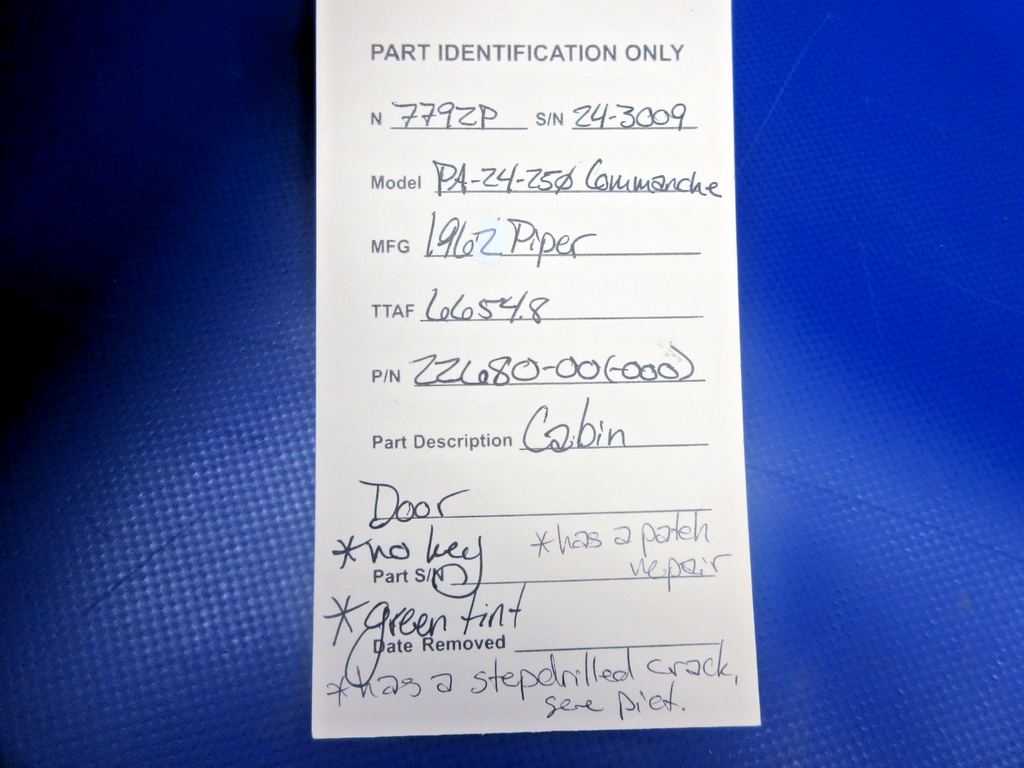 PART IDENTIFICATION ONLY
N 7792P S/N 24-3009
Model PA-24-25ø Commanche
MFG 1962 Piper
TTAF 6654.8
P/N 22680-00(-000)
Part Description Cabin
Door
*no key *has a patch
repair
Part S/N
*green tint
Date Removed
*has a stepdrilled crack,
see pict.